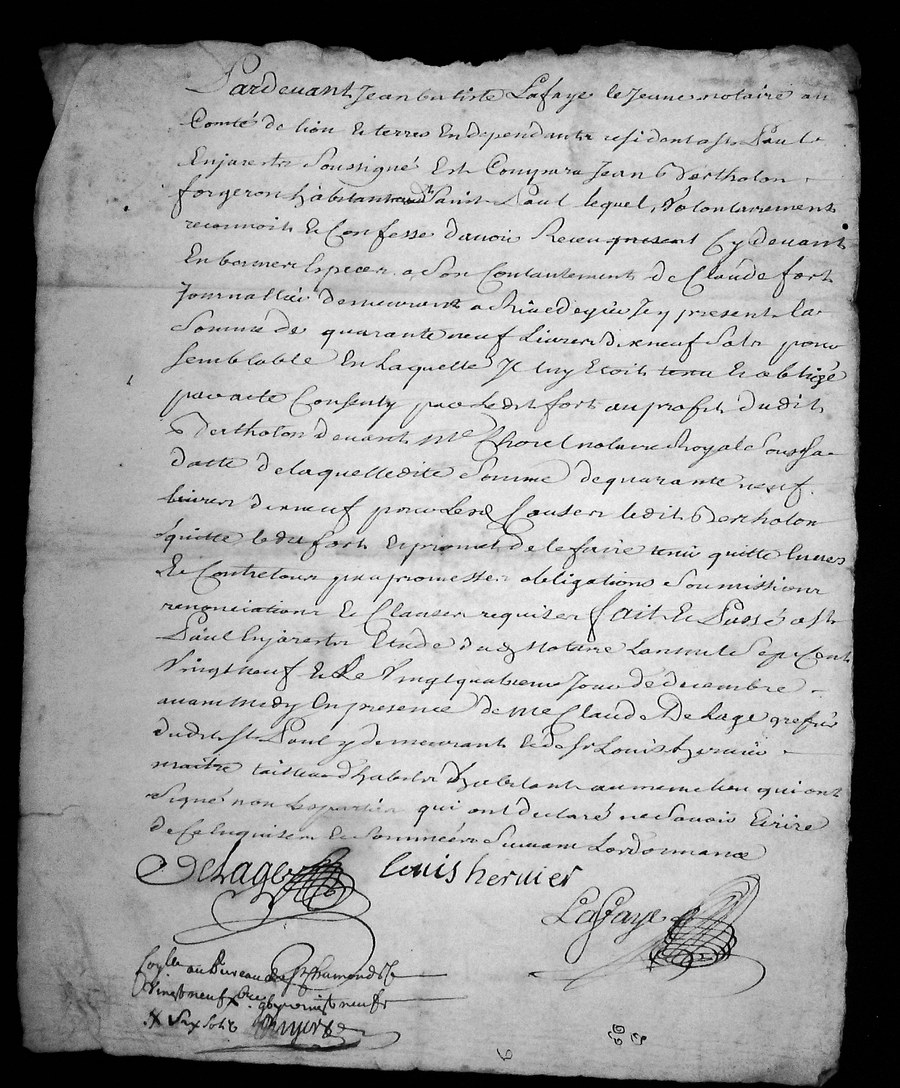 Pardevant Jean batiste Lafaye le Jeune notaire au
Comté de lion & terres En dependante residant a st Paul
Enjarestz Soussigné Est Comparu Jean Bertholon
forgeron habitant audt Saint Paul lequel, Volontairement
reconnoit & Confesse davoir Receu present Cy devant
En bonnes Especes a Son Contantement de Claude fort
Journallier demeurant a Rivedegier Icy present la
Somme de quarante neuf Livres dixneuf Sols pour
semblable En Laquelle Il luy Etoit tenu & obligé
par acte Consenty par Ledit fort au profit dudit
Bertholon devant Me Chorel notaire Royal Sous sa
datte de laquelledite Somme de quarante neuf
livres dixneuf pour Les Causes ledit Bertholon
quitte ledit fort & promet de le faire tenir quitte Envers
& Contre tous par promesses obligations Soumissions
renonciations & Clauses requises fait & Passé a st
Paul Enjarestz Etude dudt Notaire Lan mil Sept Cent
Vingt neuf & Le Vingt quatrieme Jour de decembre
avant midy En presence de Me Claude Delage grefier
dudit st Paul y demeurant & de sr Louis hervier
maitre tailleur dhabits habitant au meme lieu qui ont
Signé non les parties qui ont declaré ne Savoir Ecrire
de Ce Enquises & Sommées Suivant Lordonnance
Delage Louis hervier
Lafaye
au Bureau de St Chamond le
Vingt neuf xbre vingt neuf
Six Sols